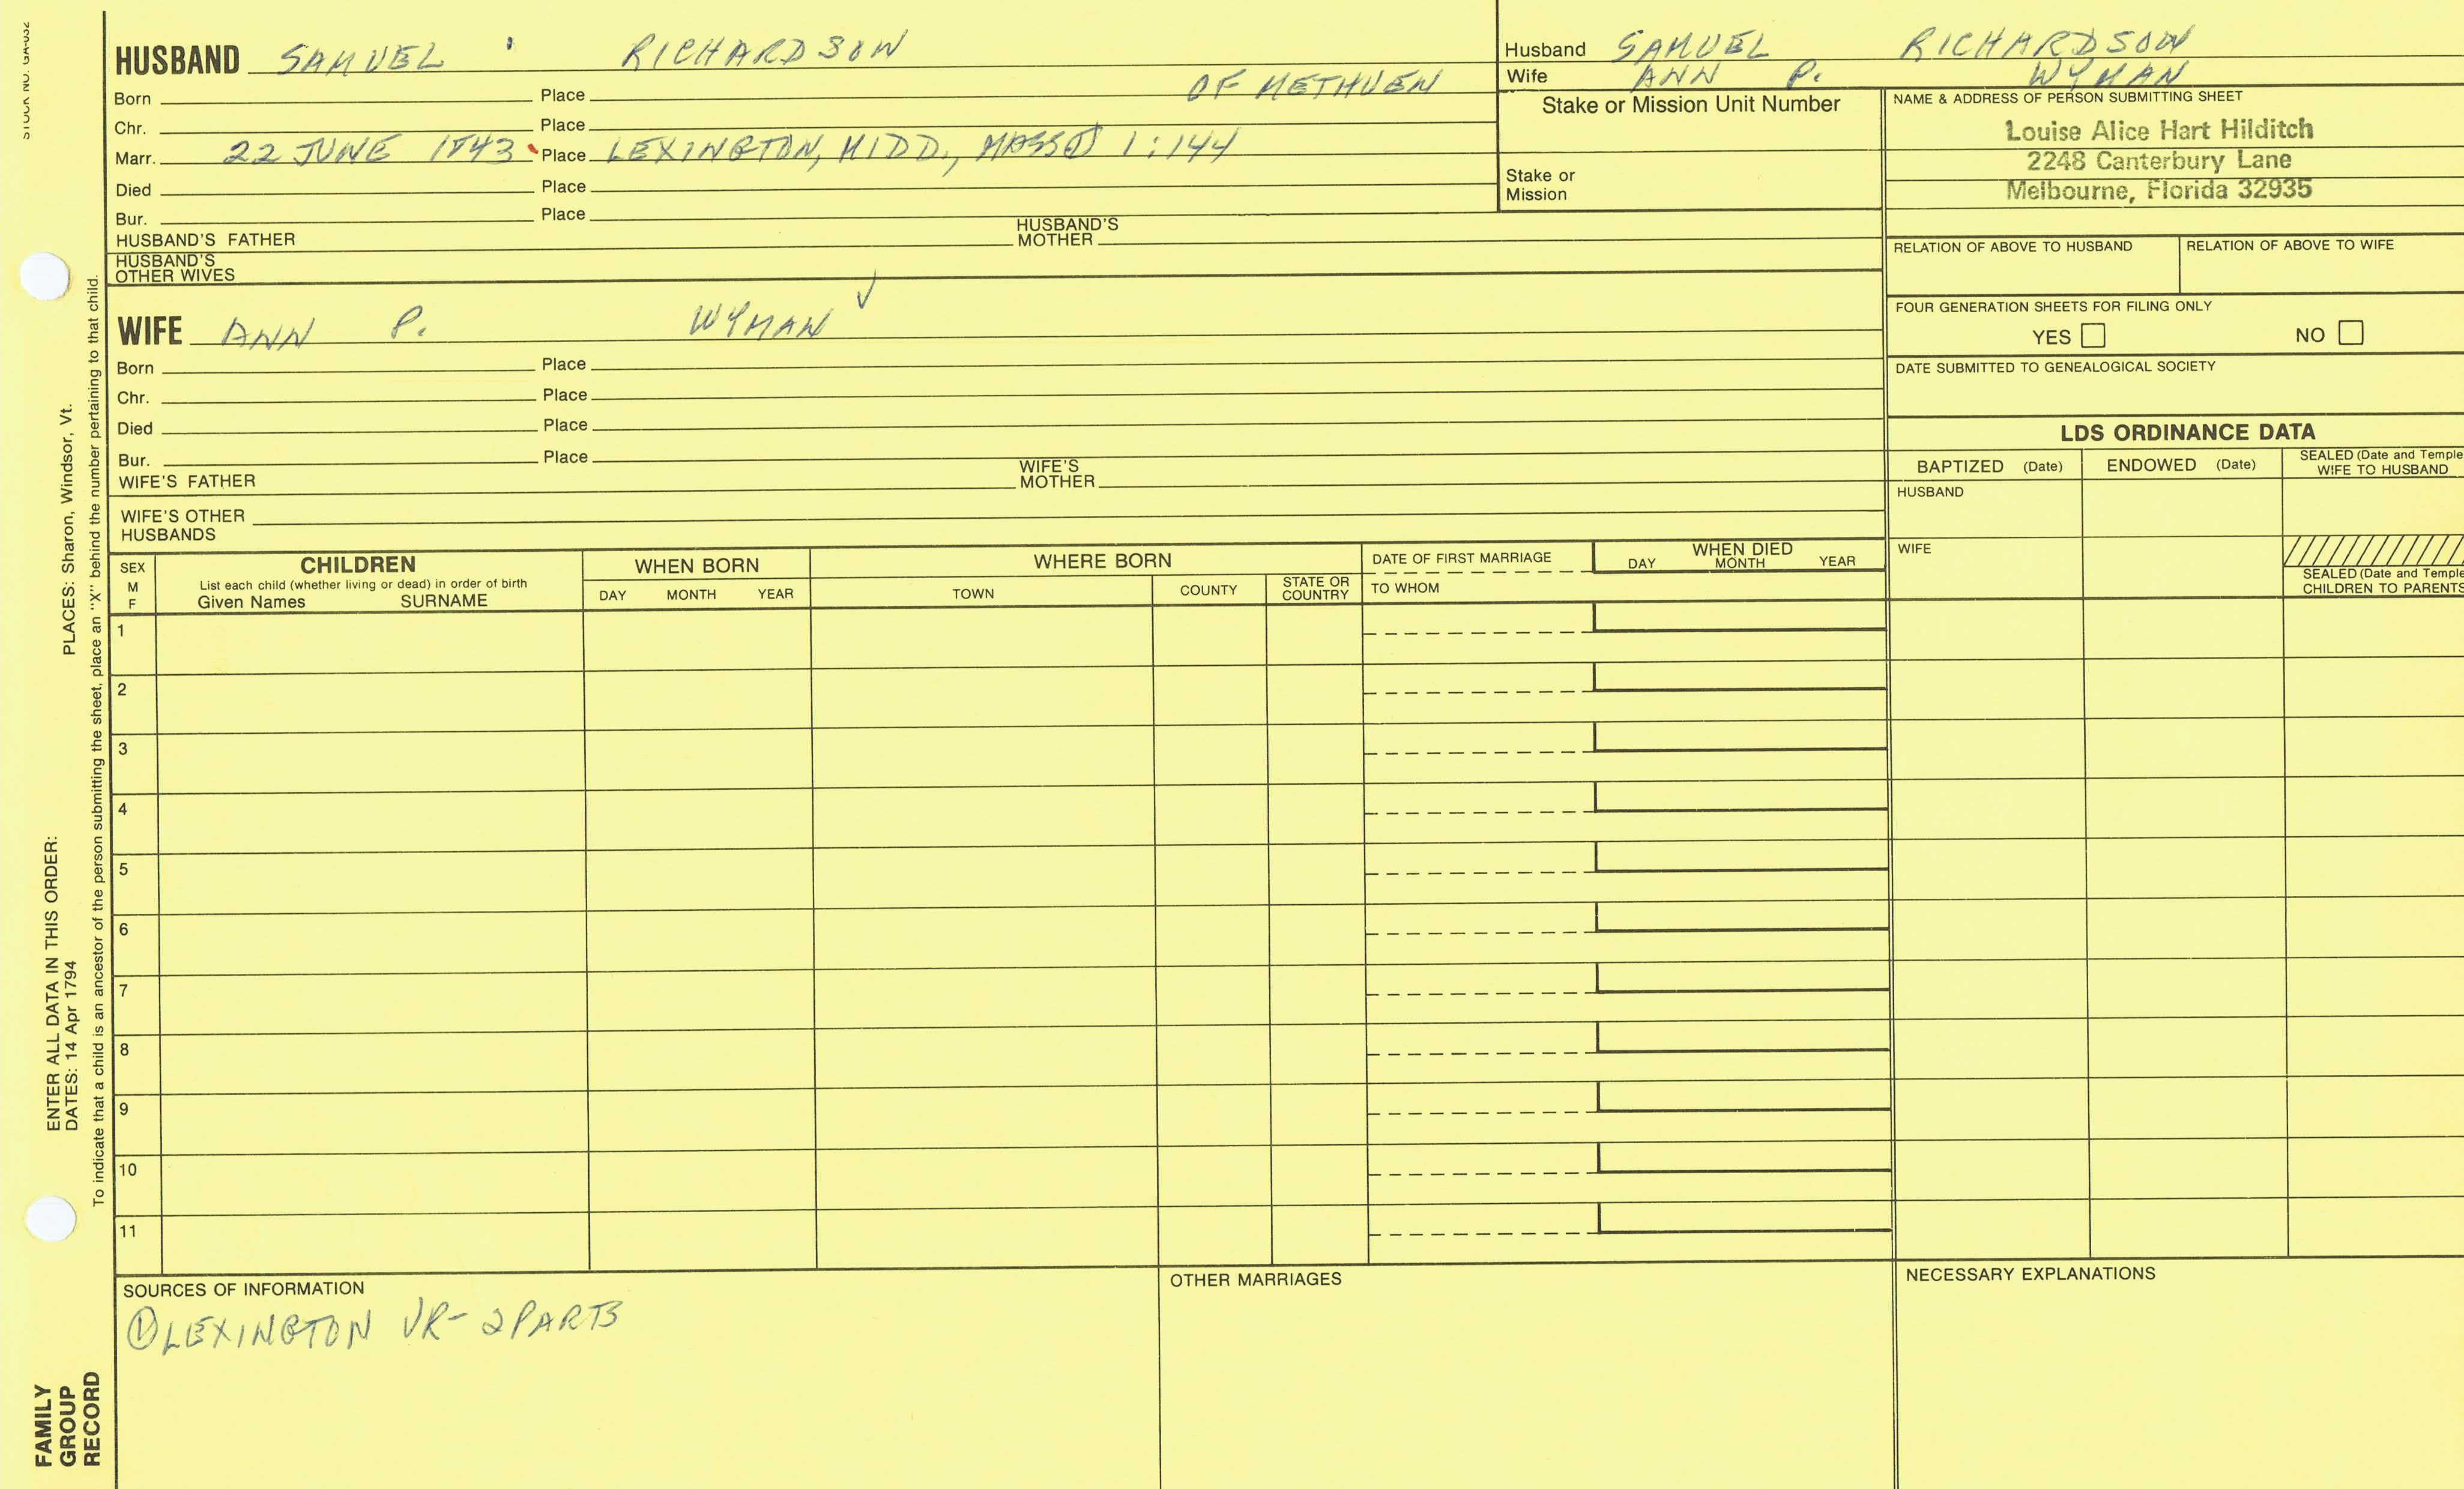 STOCK NO. GA-032
HUSBAND SAMUEL RICHARDSON
OF METHUEN
Born Place
Chr. Place
Marr. 22 JUNE 1843 Place LEXINGTON, MIDD., MASS① 1:144
Died Place
Bur. Place
HUSBAND'S FATHER HUSBAND'S MOTHER
HUSBAND'S OTHER WIVES
WIFE ANN P. WYMAN ✓
Born Place
Chr. Place
Died Place
Bur. Place
WIFE'S FATHER WIFE'S MOTHER
WIFE'S OTHER HUSBANDS
Husband SAMUEL RICHARDSON
Wife ANN P. WYMAN
Stake or Mission Unit Number
Stake or Mission
NAME & ADDRESS OF PERSON SUBMITTING SHEET
Louise Alice Hart Hilditch
2248 Canterbury Lane
Melbourne, Florida 32935
RELATION OF ABOVE TO HUSBAND RELATION OF ABOVE TO WIFE
FOUR GENERATION SHEETS FOR FILING ONLY
YES NO
DATE SUBMITTED TO GENEALOGICAL SOCIETY
LDS ORDINANCE DATA
BAPTIZED (Date) ENDOWED (Date) SEALED (Date and Temple
WIFE TO HUSBAND
HUSBAND
WIFE
SEALED (Date and Temple
CHILDREN TO PARENTS
SEX
M
F
CHILDREN
List each child (whether living or dead) in order of birth
Given Names SURNAME
WHEN BORN
DAY MONTH YEAR
WHERE BORN
TOWN COUNTY STATE OR COUNTRY
DATE OF FIRST MARRIAGE
TO WHOM
WHEN DIED
DAY MONTH YEAR
1
2
3
4
5
6
7
8
9
10
11
SOURCES OF INFORMATION
① LEXINGTON VR- 2 PARTS
OTHER MARRIAGES
NECESSARY EXPLANATIONS
ENTER ALL DATA IN THIS ORDER:
DATES: 14 Apr 1794 PLACES: Sharon, Windsor, Vt.
To indicate that a child is an ancestor of the person submitting the sheet, place an "X" behind the number pertaining to that child.
FAMILY
GROUP
RECORD